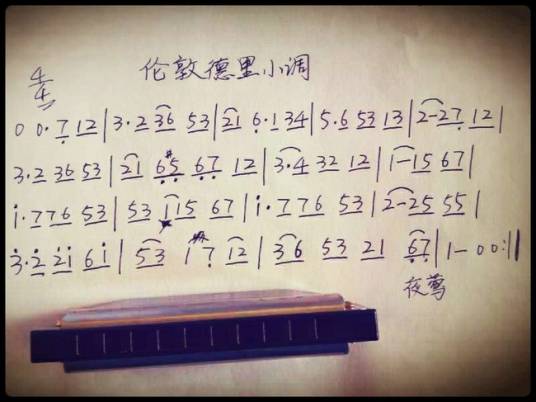 伦敦德里小调
4/4
0 0·7 12|3·2 36 53|21 6·1 34|5·6 53 13|2-27 12|
3·2 36 53|21 6#5 67 12|3·4 32 12|1-15 67|
i·776 53|53 115 67|i·776 53|2-25 55|
3·2 21 61|53 1 7 12|36 53 21 67|1-00:||
夜莺